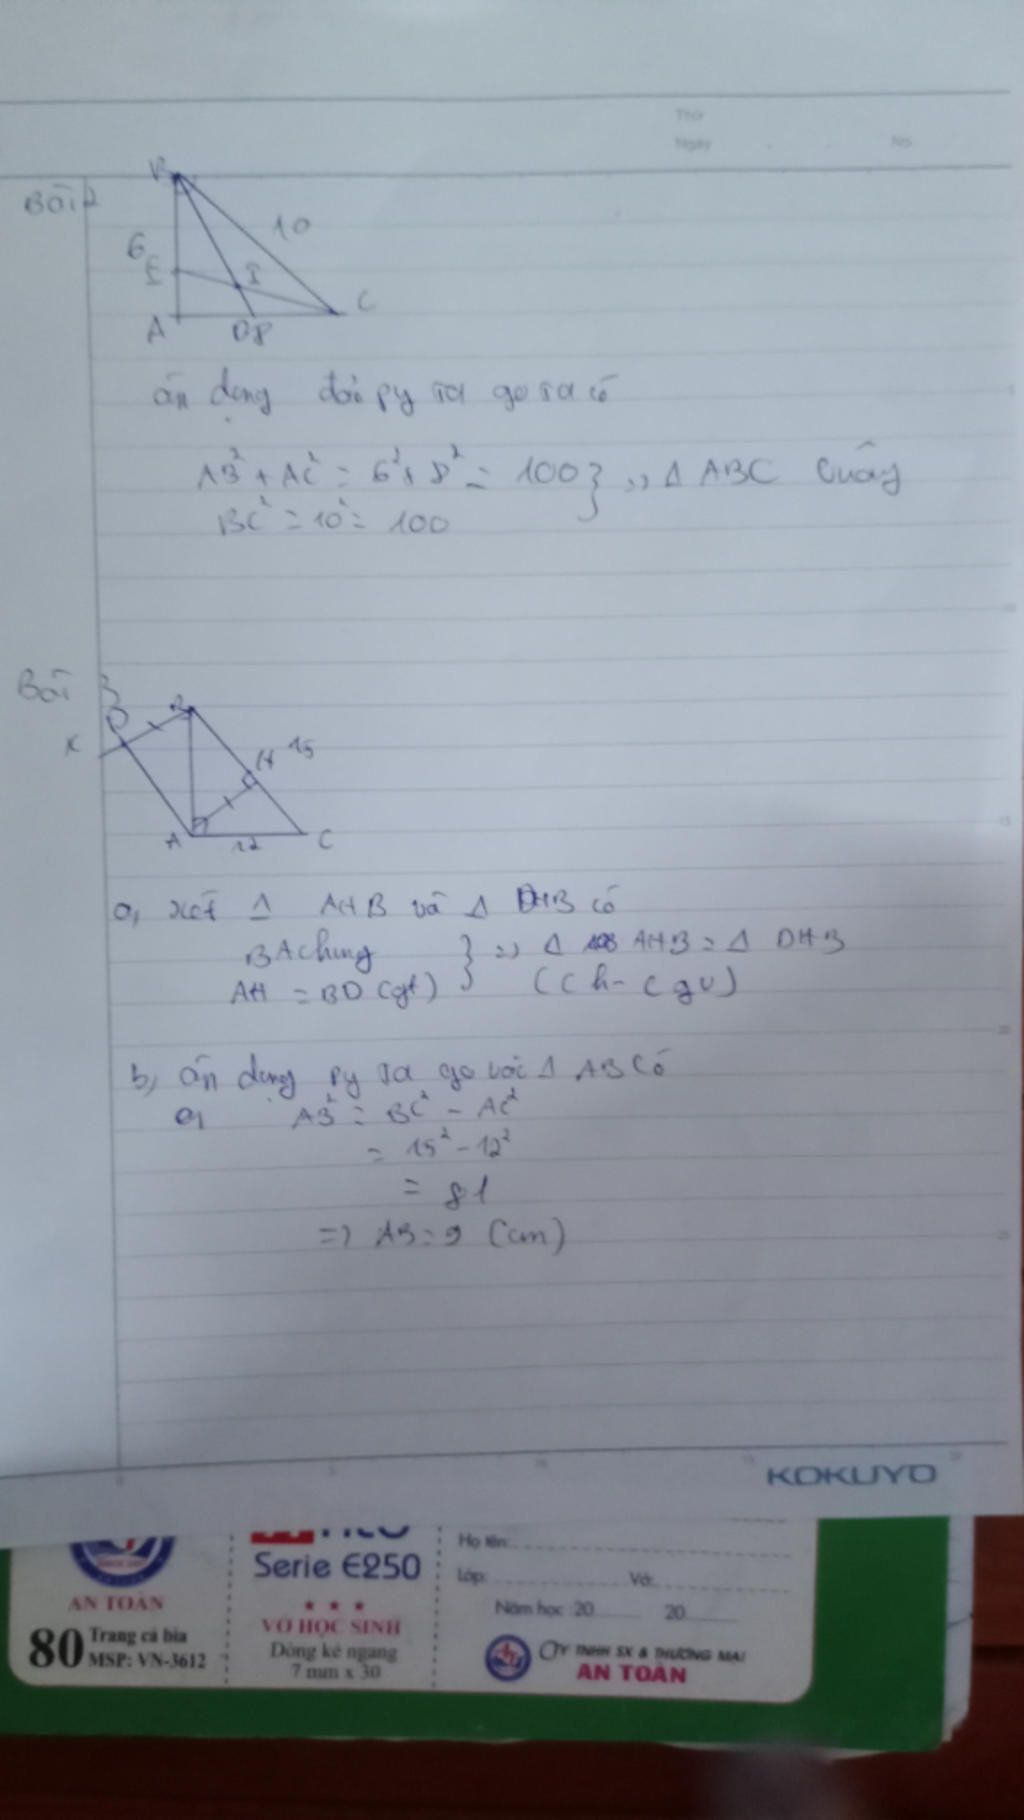 Thứ
Ngày No
Bài 2
B
10
6
E I
C
A D 8
áp dụng đảo py ta go ta có
AB² + AC² = 6² + 8² = 100 } => Δ ABC vuông
BC² = 10² = 100
Bài 3
D B
K
H 15
A 12 C
a, xét Δ AHB và Δ DHB có
BA chung } => Δ AHB = Δ DHB
AH = BD (gt) (ch - cgv)
b, áp dụng py ta go với Δ ABC có
AB² = BC² - AC²
= 15² - 12²
= 81
=> AB = 9 (cm)
KOKUYO
Serie €250
AN TOÀN
80 Trang cả bìa
MSP: VN-3612
★ ★ ★
VỞ HỌC SINH
Dòng kẻ ngang
7 mm x 30
Họ tên:
Lớp: Vở:
Năm học 20 20
CTY TNHH SX & THƯƠNG MẠI
AN TOÀN